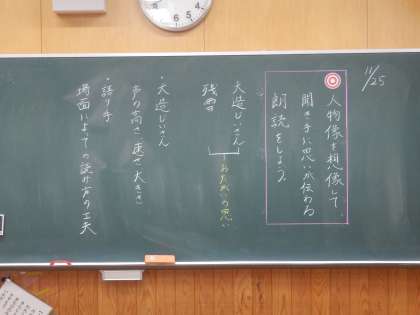 11/25
人物像を想像して、
聞き手に思いが伝わる
朗読をしよう。
大造じいさん
残雪
おたがいの思い
・大造じいさん
声の高さ、速さ、大きさ
・語り手
場面によっての読み声の工夫